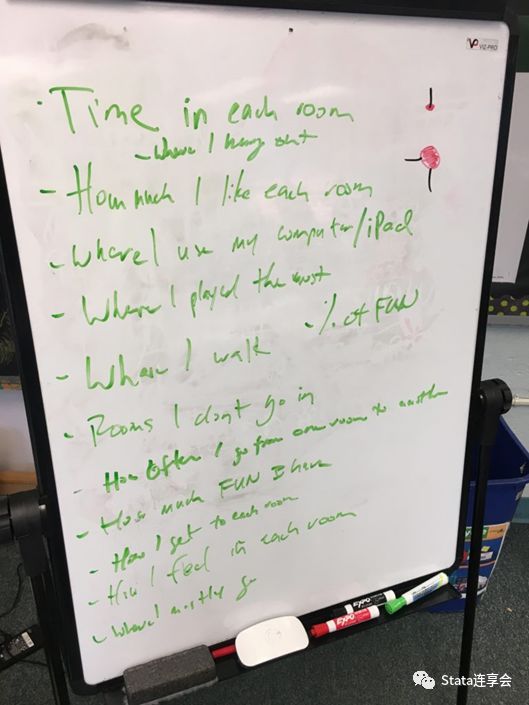 VIZ-PRO
· Time in each room
- where I hang out
- How much I like each room
- Where I use my computer/iPad
- Where I played the most
- % of FUN
- Where I walk
- Rooms I dont go in
- How Often I go from one room to another
- How much FUN I have
- How I get to each room
- How I feel in each room
- Where I mostly go
EXPO
EXPO
Stata连享会